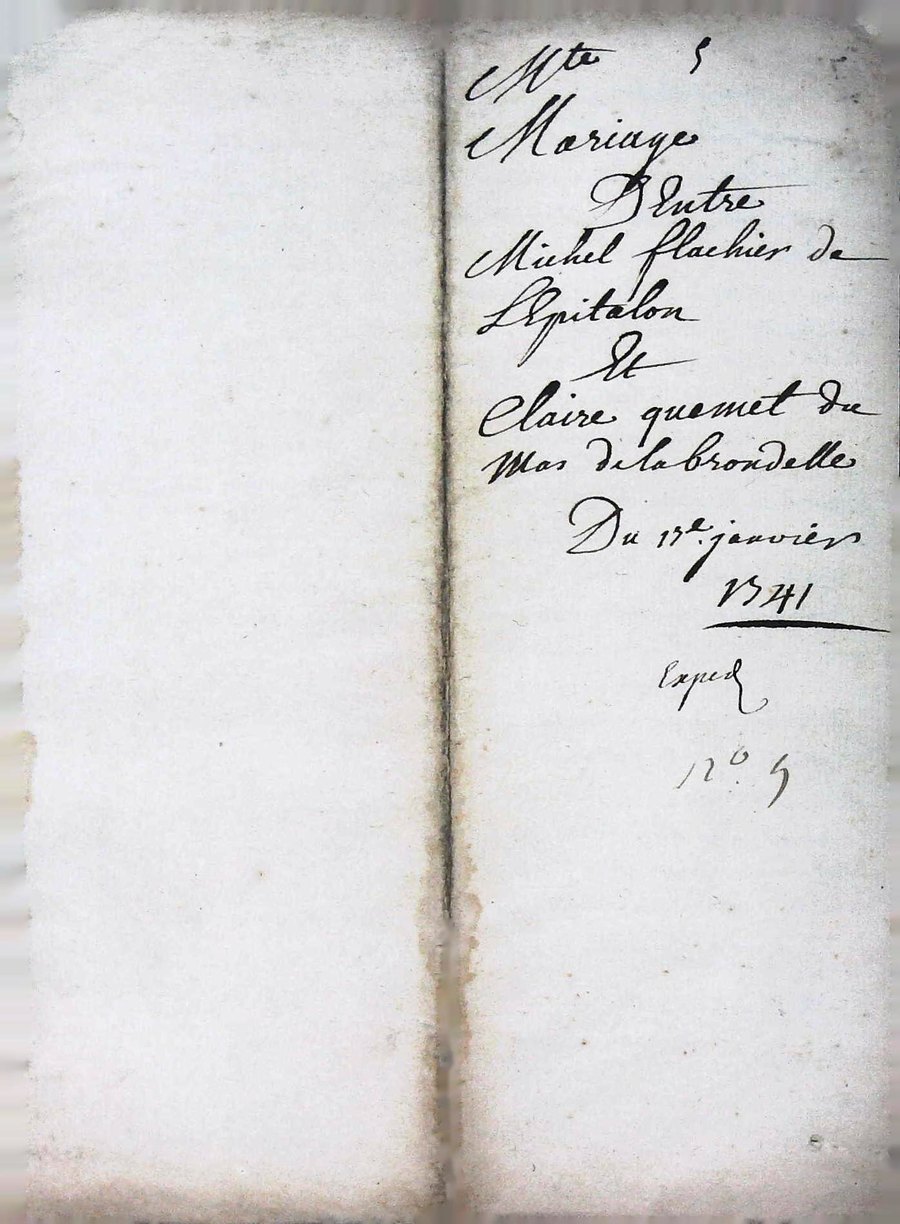 Mte 5
Mariage
D'Entre
Michel flachier de
L'Epitalon
Et
Claire quemet du
Mas de la brondelle
Du 13e. janvier
1741
Exped
no. 5